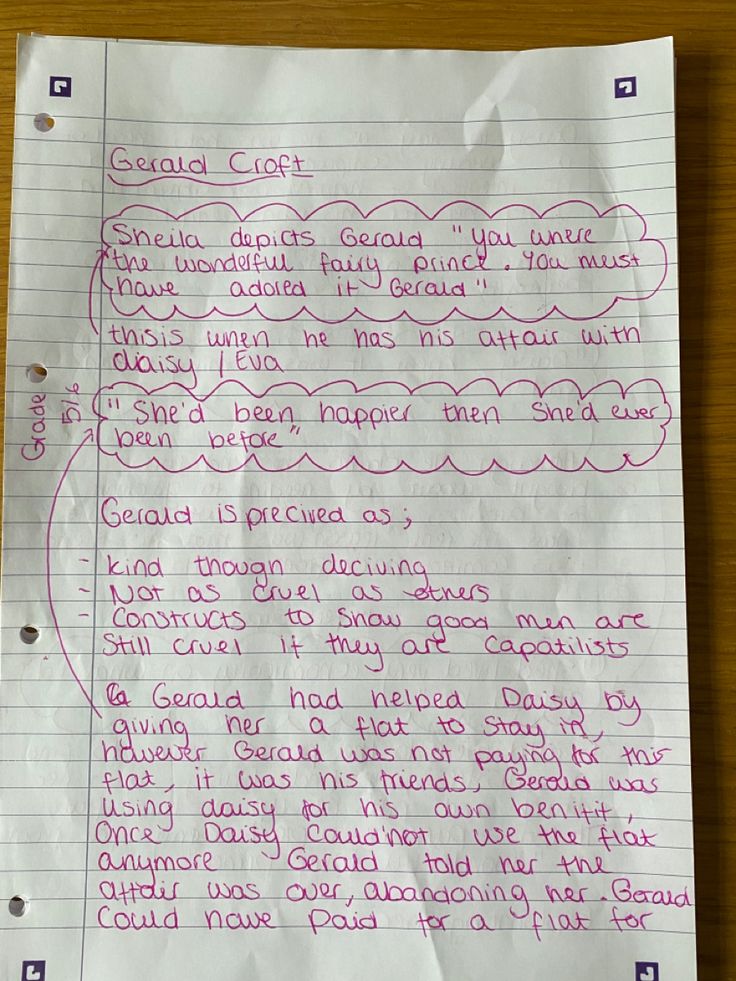 Gerald Croft
Sheila depicts Gerald "you where
the wonderful fairy prince. You must
have adored it Gerald"
this is when he has his affair with
diaisy / Eva
Grade 5/6
"She'd been happier then She'd ever
been before"
Gerald is precived as;
- kind though deciving
- Not as cruel as others
- Constructs to show good men are
Still cruel if they are Capatilists
Gerald had helped Daisy by
giving her a flat to stay in,
however Gerald was not paying for this
flat, it was his friends, Gerald was
using daisy for his own benifit,
Once Daisy Could'not use the flat
anymore Gerald told her the
affair was over, abandoning her. Gerald
Could have paid for a flat for